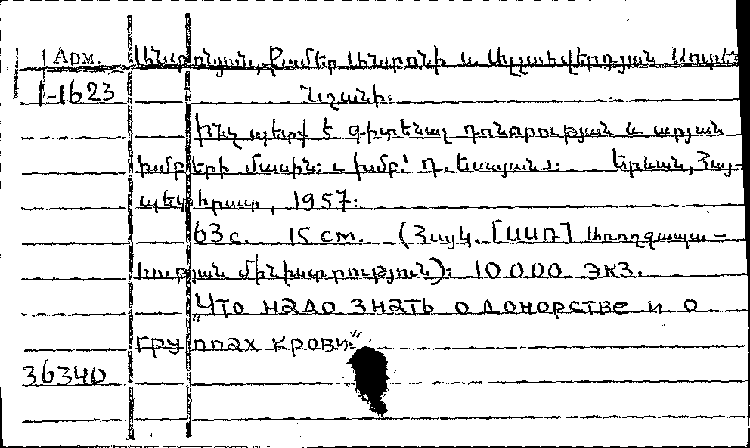 Арм. Անարոնյան, Թամեր Ահարոնի և Ալլահվերդյան Սուրեն
1-1623 Նշանի։
Ինչ պետք է գիտենալ դոնորության և արյան
խմբերի մասին։ Խմբ.՝ Դ. Եսայան։ Երևան, Հայ-
պետհրատ, 1957։
63 с. 15 см. (Հայկ. [ՍՍՌ] Առողջապա-
հության մինիստրություն)։ 10000 экз.
"Что надо знать о донорстве и о
группах крови"
36340